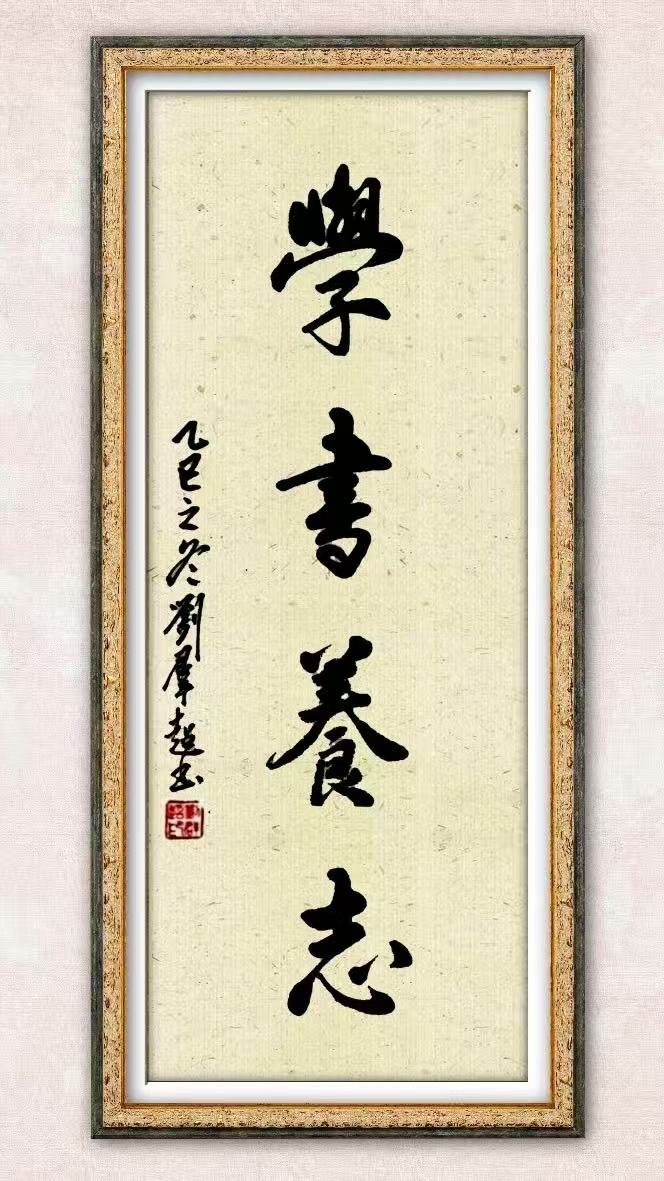 學書養志
乙巳之冬劉羣超书